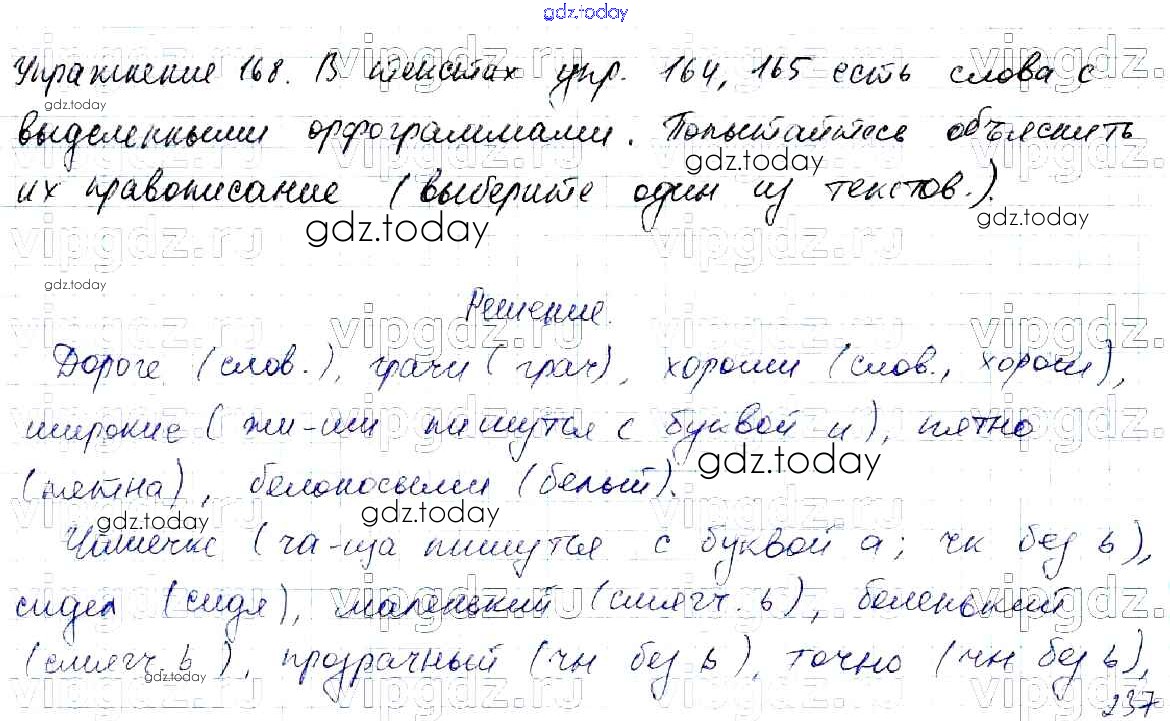 gdz.today
Упражнение 168. В текстах упр. 164, 165 есть слова с
gdz.today
выделенными орфограммами. Попытайтесь объяснить
gdz.today
их правописание (выберите один из текстов.).
gdz.today
gdz.today
Решение.
Дороге (слов.), грачи (грач), хороши (слов., хорош),
широкие (жи-ши пишутся с буквой и), пятно
gdz.today
(пятна), белоносыми (белый).
gdz.today gdz.today
Чашечке (ча-ща пишутся с буквой а; чк без ь),
сидел (сидя), маленький (смягч. ь), беленький
(смягч. ь), прозрачный (чн без ь), точно (чн без ь),
gdz.today
237